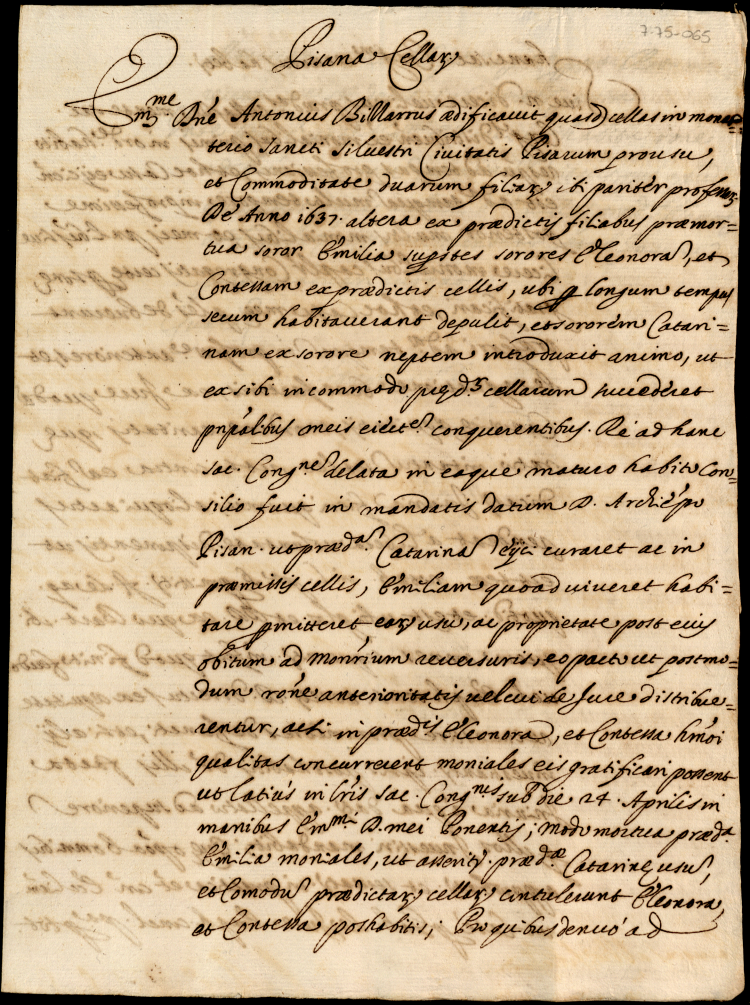 7-75-065
Pisana Cellarȝ
Em̄me Dnē Antonius Billarrus ædificauit quasd cellas in monas
terio Sancti Siluestri Ciuitatis Pisarum pro usu,
et Commoditate duarum filiarȝ ibi pariter professarȝ
De Anno 1637. altera ex prædictis filiabus præmor=
tua soror Emilia sup̄stes sorores Eleonora, et
Contessam ex prædictis cellis, ubi p longum tempus
secum habitauerant depulit, et sororem Catari=
nam ex sorore neptem introduxit animo, ut
ex sibi in commodu cellarum succederet
pnp̄alibus meis eiect. conquerentibus. Re ad hanc
sac. Congne delata in eaque maturo habito Con=
silio fuit in mandatis datum D. Archiēpo
Pisan. ut præda. Catarina eijci curaret ac in
præmissis cellis, Emiliam quoad uiueret habi=
tare pmitteret earȝ usu, ac proprietate post eius
obitum ad Monrīum reuersuris, eo pacto ut postmo=
dum ronē anterioritatis uel cui de Jure distribue=
rentur, ac si in prædis Eleonora, et Contessa hm̄oi
qualitas concurrerent moniales eis gratificari possent
ut latius in lrīs sac. Congnis sub die 24. Aprilis in
manibus Em̄mi D. mei Ponentis; Modo mortua præda.
Emilia moniales, ut asserit. prædæ Catarinę usu,
et Comodu prædictarȝ cellarȝ contulerunt Eleonora,
et Contessa posthabitis; Pro quibus denuò ad